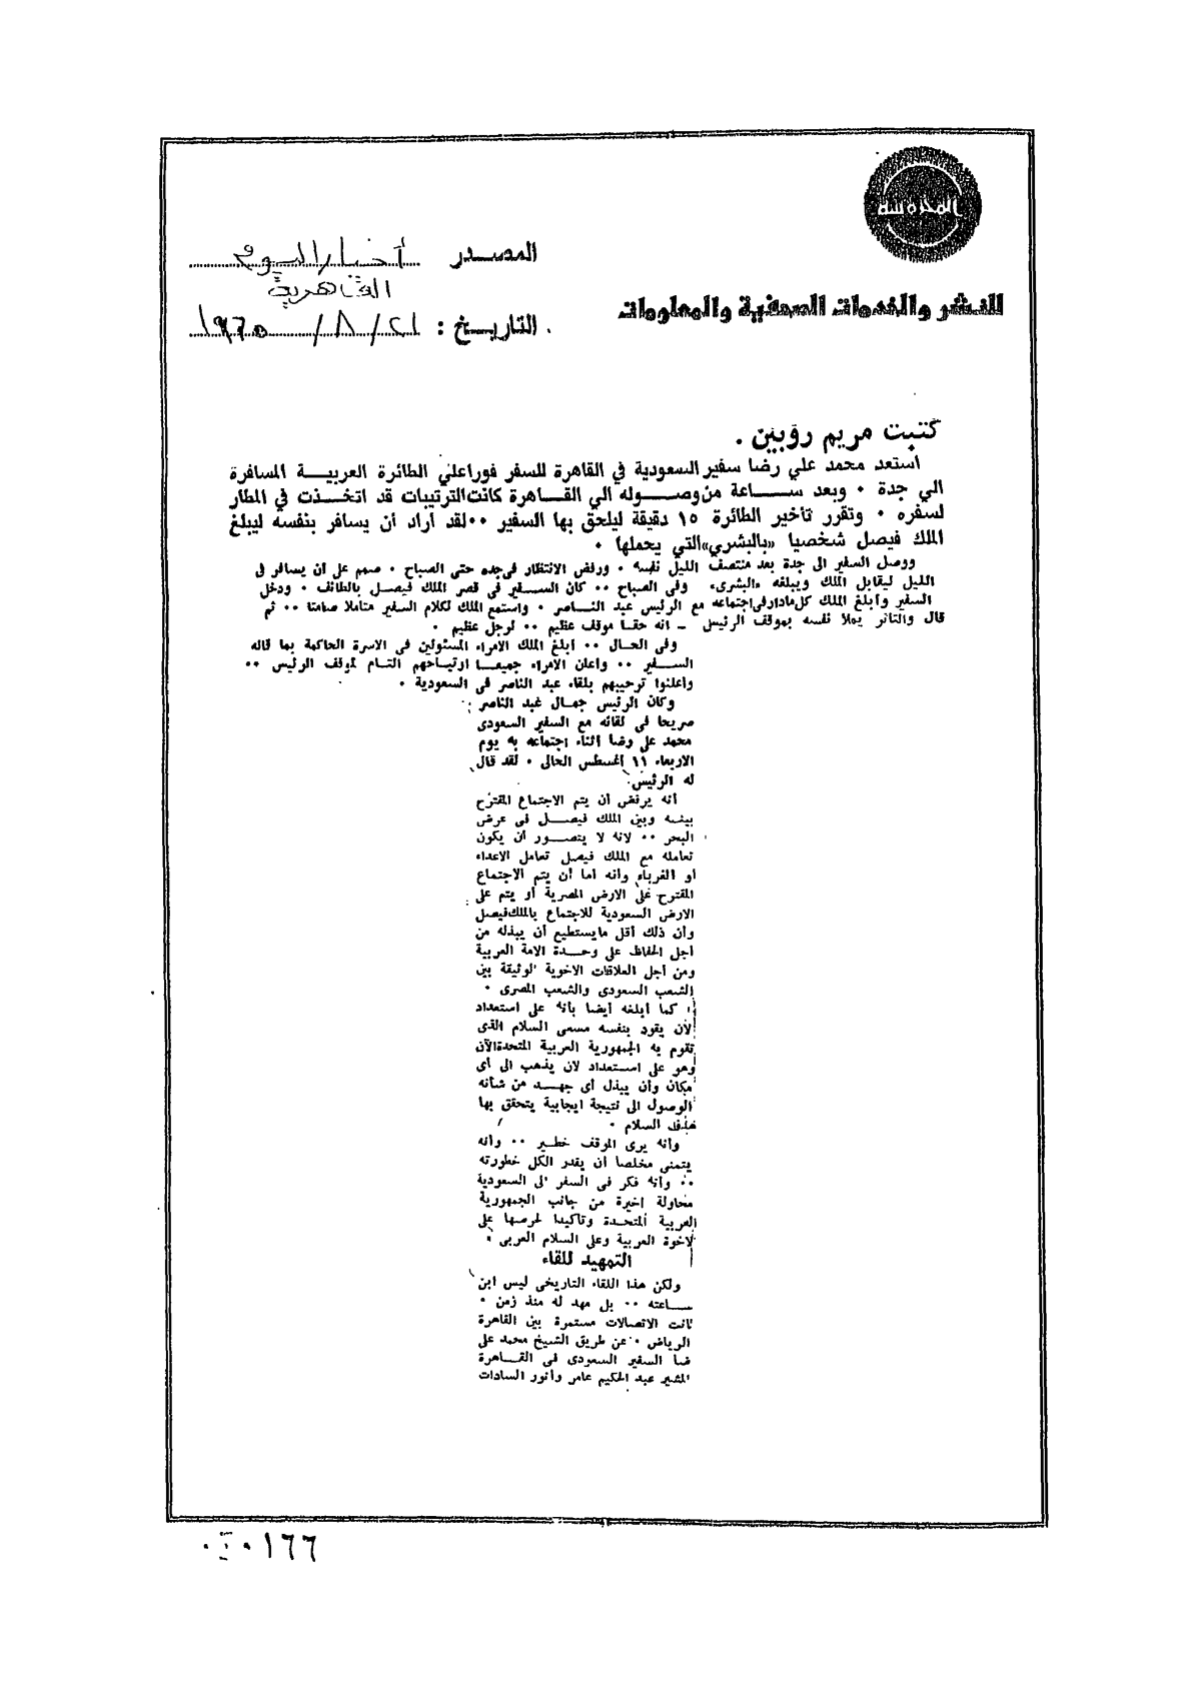 المحروسة
للنشر والخدمات الصحفية والمعلومات
المصدر أخبار اليوم
القاهرية
التاريخ : ٢١ / ٨ / ١٩٦٥
كتبت مريم روبين .
استعد محمد علي رضا سفير السعودية في القاهرة للسفر فورا علي الطائرة العربية المسافرة
الي جدة . وبعد ساعة من وصوله الي القاهرة كانت الترتيبات قد اتخذت في المطار
لسفره . وتقرر تأخير الطائرة ١٥ دقيقة ليلحق بها السفير .. لقد أراد أن يسافر بنفسه ليبلغ
الملك فيصل شخصيا «بالبشري» التي يحملها .
ووصل السفير الى جدة بعد منتصف الليل نفسه . ورفض الانتظار فى جده حتى الصباح . صمم على ان يسافر فى
الليل ليقابل الملك ويبلغه «البشرى» وفى الصباح .. كان السفير فى قصر الملك فيصل بالطائف . ودخل
السفير وأبلغ الملك كل مادار فى اجتماعه مع الرئيس عبد الناصر . واستمع الملك لكلام السفير متأملا صامتا .. ثم
قال والتأثر يملأ نفسه بموقف الرئيس - انه حقا موقف عظيم .. لرجل عظيم .
وفى الحال .. أبلغ الملك الامراء المسئولين فى الاسرة الحاكمة بما قاله
السفير .. وأعلن الامراء جميعا ارتياحهم التام لموقف الرئيس ..
وأعلنوا ترحيبهم بلقاء عبد الناصر فى السعودية .
وكان الرئيس جمال عبد الناصر
صريحا فى لقائه مع السفير السعودى
محمد على رضا أثناء اجتماعه به يوم
الاربعاء ١١ أغسطس الحالى . لقد قال
له الرئيس:
أنه يرفض أن يتم الاجتماع المقترح
بينه وبين الملك فيصل فى عرض
البحر .. لانه لا يتصور أن يكون
تعامله مع الملك فيصل تعامل الاعداء
او الغرباء وأنه اما أن يتم الاجتماع
المقترح على الارض المصرية أو يتم على
الارض السعودية للاجتماع بالملك فيصل
وأن ذلك أقل مايستطيع أن يبذله من
أجل الحفاظ على وحدة الامة العربية
ومن أجل العلاقات الاخوية الوثيقة بين
الشعب السعودى والشعب المصرى .
كما أبلغه أيضا بأنه على استعداد
لأن يقود بنفسه مسعى السلام الذى
تقوم به الجمهورية العربية المتحدة الآن
وهو على استعداد لان يذهب الى أى
مكان وأن يبذل أى جهد من شأنه
الوصول الى نتيجة ايجابية يتحقق بها
هدف السلام .
وأنه يرى الموقف خطير .. وأنه
يتمنى مخلصا أن يقدر الكل خطورته
.. وأنه فكر فى السفر الى السعودية
محاولة اخيرة من جانب الجمهورية
العربية المتحدة وتأكيدا لحرصها على
لاخوة العربية وعلى السلام العربى .
التمهيد للقاء
ولكن هذا اللقاء التاريخى ليس ابن
ساعته .. بل مهد له منذ زمن .
كانت الاتصالات مستمرة بين القاهرة
الرياض . عن طريق الشيخ محمد على
ضا السفير السعودى فى القاهرة
المشير عبد الحكيم عامر وأنور السادات